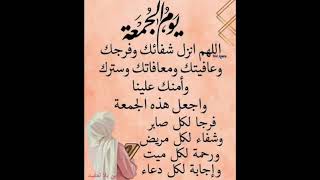 يوم الجمعة
اللهم انزل شفائك وفرجك
وعافيتك ومعافاتك وسترك
وأمنك علينا
واجعل هذه الجمعة
فرجا لكل صابر
وشفاء لكل مريض
ورحمة لكل ميت
وإجابة لكل دعاء